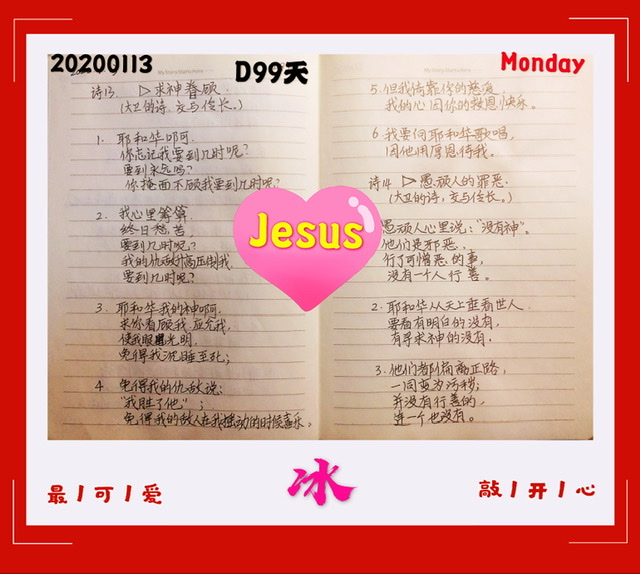 20200113
D99天
Monday
My Story Starts Here
诗13. ▷求神眷顾.
(大卫的诗,交与伶长。)
1. 耶和华啊可,
你忘记我要到几时呢?
要到永远吗?
你掩面不顾我要到几时呢?
2. 我心里筹算
终日愁苦
要到几时呢?
我的仇敌升高压倒我,
要到几时呢?
3. 耶和华我的神啊可,
求你看顾我,应允我,
使我眼目光明,
免得我沉睡至死;
4 免得我的仇敌说:
"我胜了他";
免得我的敌人在我摇动的时候喜乐。
5.但我倚靠你的慈爱,
我的心因你的救恩快乐。
6.我要向耶和华歌唱,
因他用厚恩待我。
诗14 ▷愚顽人的罪恶.
(大卫的诗,交与伶长。)
愚顽人心里说:"没有神"。
他们是邪恶,
行了可憎恶的事,
没有一个人行善。
2.耶和华从天上垂看世人
要看有明白的没有,
有寻求神的没有。
3.他们都偏离正路,
一同变为污秽;
并没有行善的,
连一个也没有。
Jesus
最丨可丨爱
冰
敲丨开丨心